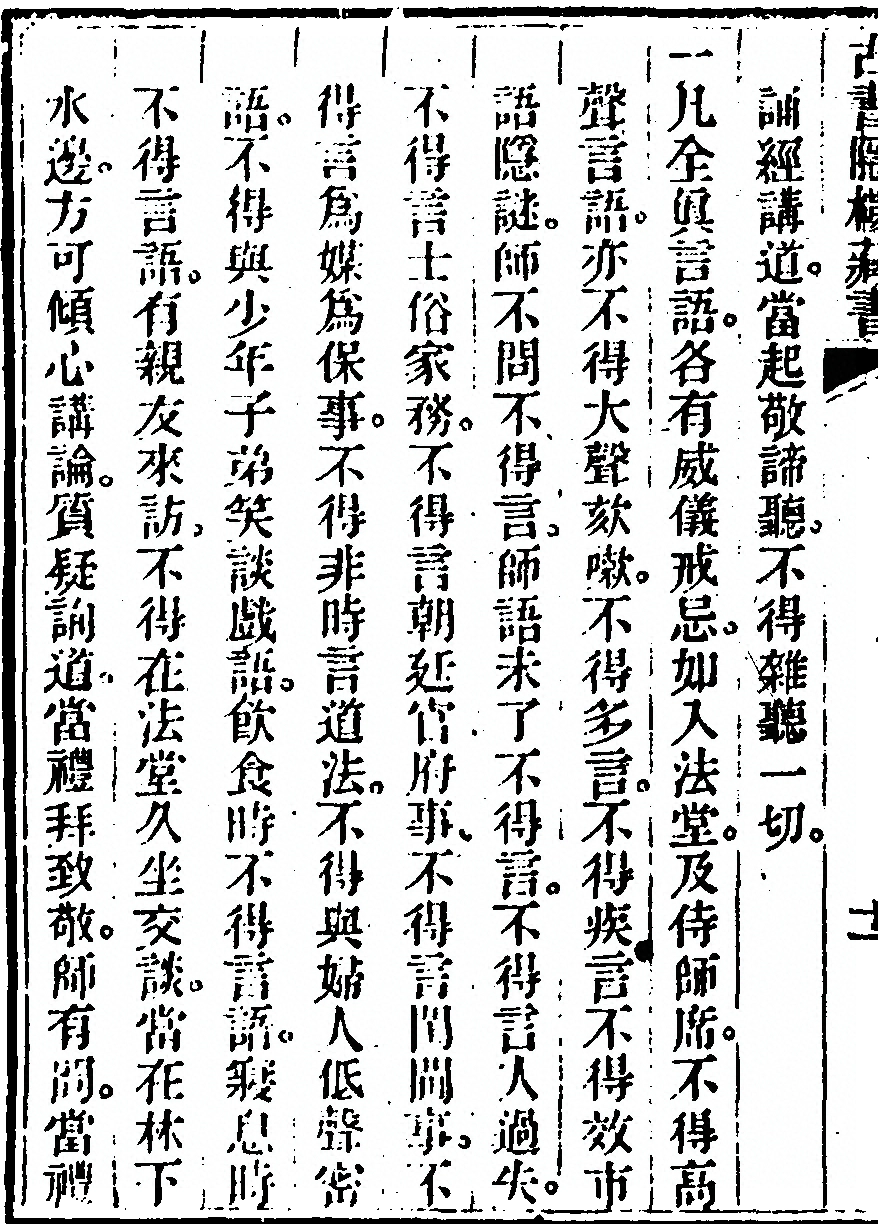 古書隱樓藏書
士
誦經講道。當起敬諦聽。不得雜聽一切。
一凡全眞言語。各有威儀戒忌。如入法堂。及侍師席。不得高
聲言語。亦不得大聲欬嗽。不得多言。不得疾言。不得效市
語隱謎。師不問不得言。師語未了不得言。不得言人過失。
不得言士俗家務。不得言朝延官府事。不得言閨閫事。不
得言爲媒爲保事。不得非時言道法。不得與婦人低聲密
語。不得與少年子弟笑談戲語。飲食時不得言語。寢息時
不得言語。有親友來訪。不得在法堂久坐交談。當在林下
水邊。方可傾心講論。質疑詢道。當禮拜致敬。師有問。當禮